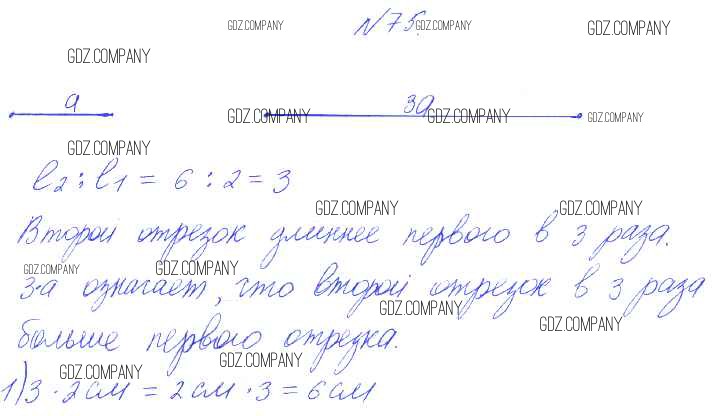 N 75.
GDZ.COMPANY GDZ.COMPANY GDZ.COMPANY
GDZ.COMPANY
a 3a
GDZ.COMPANY GDZ.COMPANY GDZ.COMPANY
GDZ.COMPANY
l2 : l1 = 6 : 2 = 3
GDZ.COMPANY GDZ.COMPANY
Второй отрезок длиннее первого в 3 раза.
GDZ.COMPANY GDZ.COMPANY
3·a означает, что второй отрезок в 3 раза
GDZ.COMPANY
GDZ.COMPANY
больше первого отрезка.
GDZ.COMPANY GDZ.COMPANY
1) 3 · 2 см = 2 см · 3 = 6 см